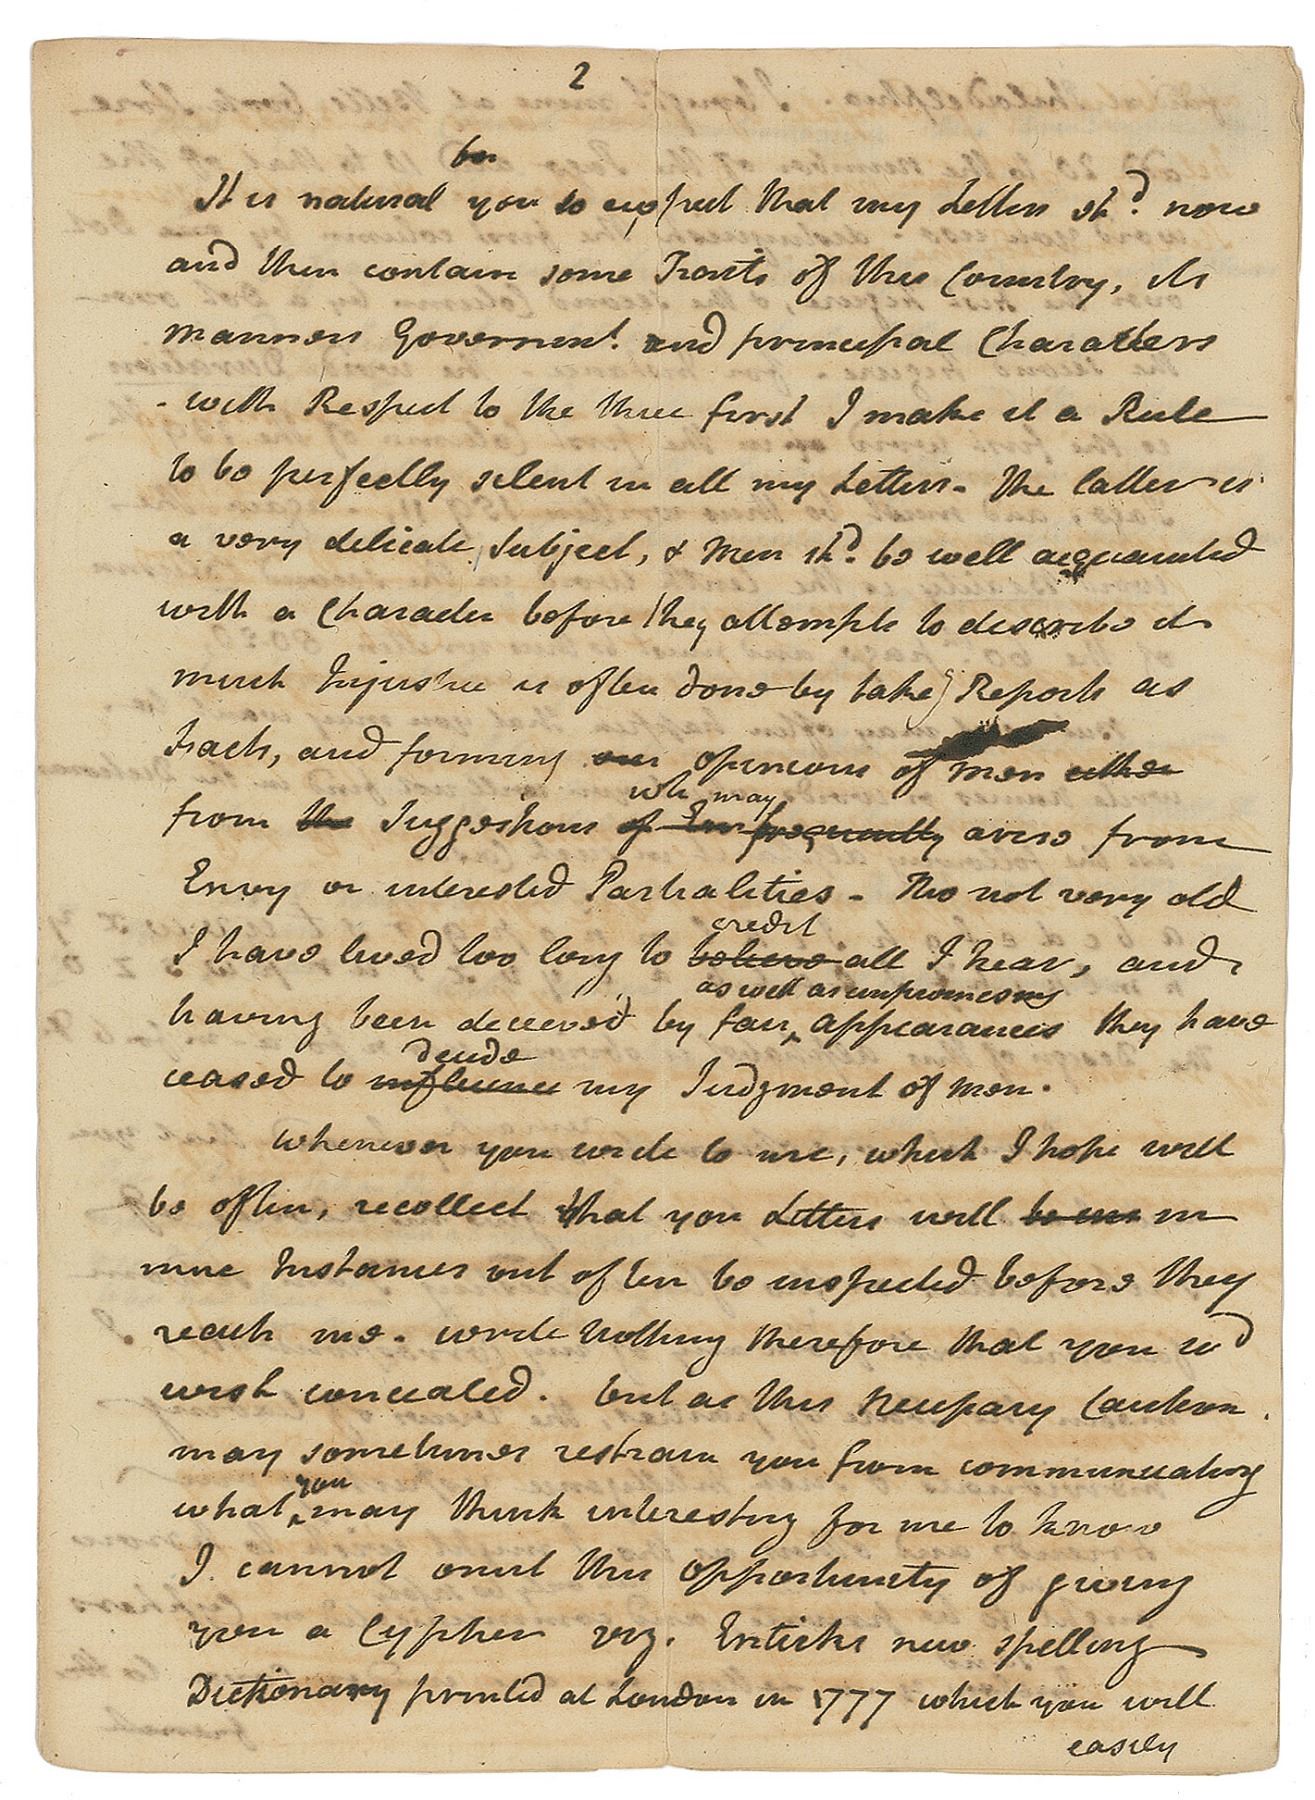 2
for
It is natural you to expect that my Letters shd. now
and then contain some Traits of this Country, its
manners Governmt. and principal Characters
- with Respect to the three first I make it a Rule
to be perfectly silent in all my Letters - The latter is
a very delicate Subject, & Men shd. be well acquainted
with a Character before they attempt to describe it
much Injustice is often done by takg Reports as
Facts, and forming our opinions of men either
wh may
from the Suggestions of Env frequently arise from
Envy or interested Partialities - Tho not very old
credit
I have lived too long to believe all I hear, and
as well as unpromising
having been deceived by fair appearances they have
decide
ceased to influence my Judgment of Men.
Whenever you write to me, which I hope will
be often, recollect that you Letters will be in
nine Instances out of ten be inspected before they
reach me. write Nothing therefore that you wd
wish concealed. but as this Necessary Caution
may sometimes restrain you from communicating
you
what may think interesting for me to know
I cannot omit this opportunity of giving
you a Cypher viz. Enticks new spelling
Dictionary printed at London in 1777 which you will
easily